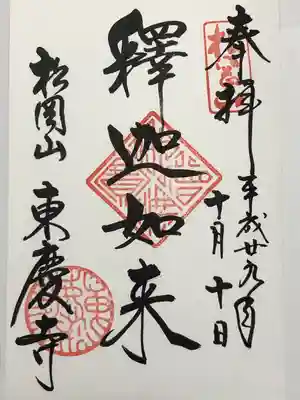 奉拝 平成廿九年
十月十日
釋迦如来
松岡山 東慶寺